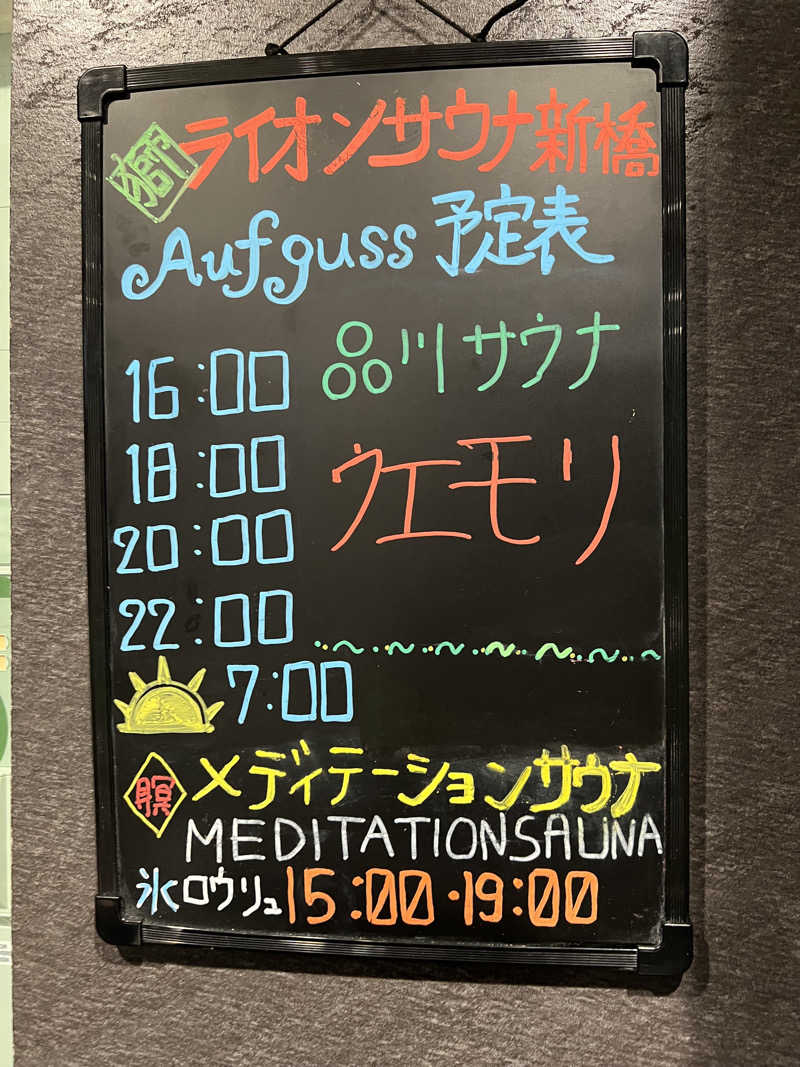 獅 ライオンサウナ新橋
Aufguss 予定表
16:00 品川サウナ
18:00 ウエモリ
20:00
22:00
7:00
メディテーションサウナ
MEDITATIONSAUNA
氷ロウリュ 15:00・19:00